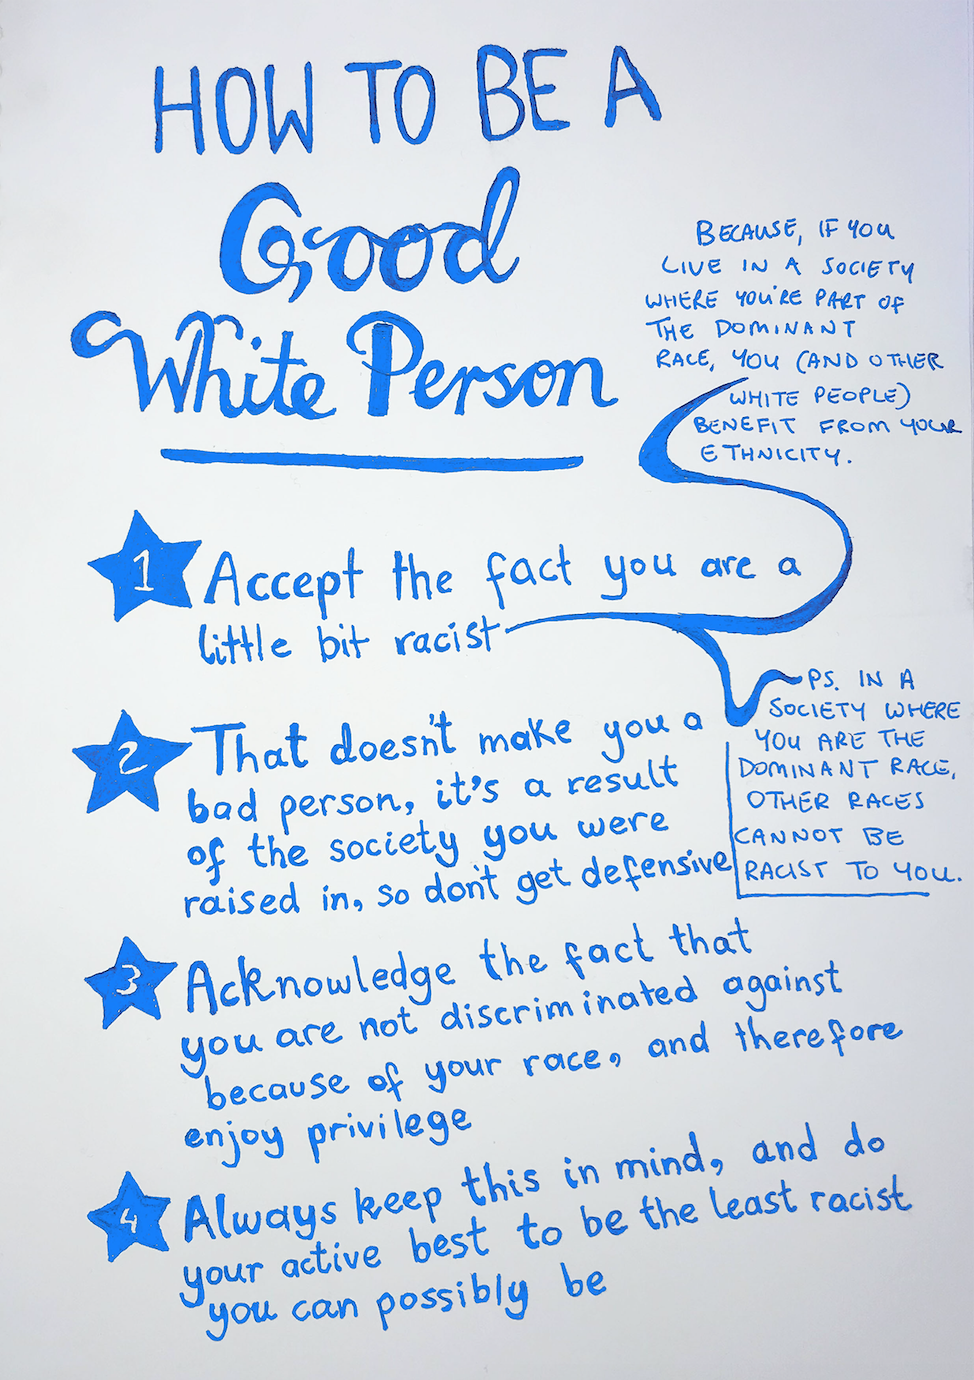 HOW TO BE A
Good
White Person
BECAUSE, IF YOU
LIVE IN A SOCIETY
WHERE YOU'RE PART OF
THE DOMINANT
RACE, YOU (AND OTHER
WHITE PEOPLE)
BENEFIT FROM YOUR
ETHNICITY.
1 Accept the fact you are a
little bit racist
PS. IN A
SOCIETY WHERE
YOU ARE THE
DOMINANT RACE,
OTHER RACES
CANNOT BE
RACIST TO YOU.
2 That doesn't make you a
bad person, it's a result
of the society you were
raised in, so don't get defensive
3 Acknowledge the fact that
you are not discriminated against
because of your race, and therefore
enjoy privilege
4 Always keep this in mind, and do
your active best to be the least racist
you can possibly be